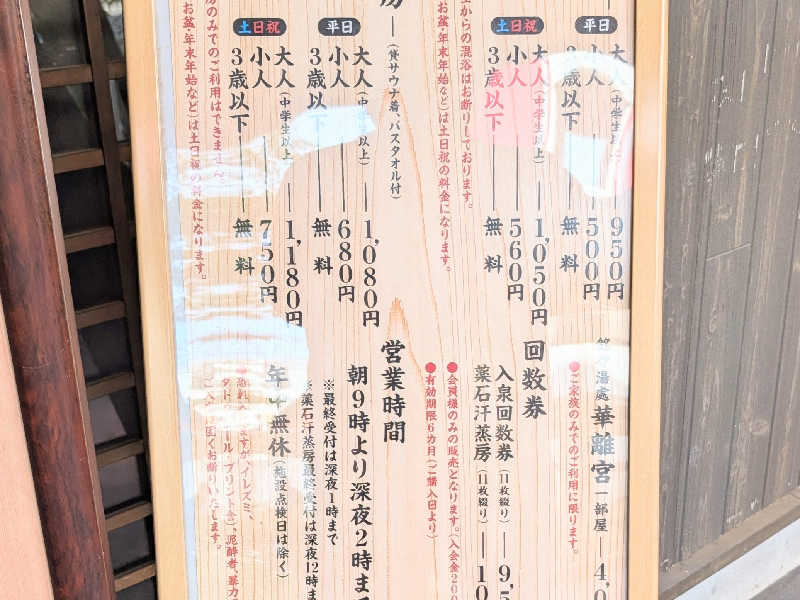 平日
大人(中学生以上)――950円
小人――500円
3歳以下――無料
土日祝
大人(中学生以上)――1,050円
小人――560円
3歳以下――無料
からの混浴はお断りしております。
お盆・年末年始など)は土日祝の料金になります。
房―(貸サウナ着、バスタオル付)
平日
大人(中学生以上)――1,080円
小人――680円
3歳以下――無料
土日祝
大人(中学生以上)――1,180円
小人――750円
3歳以下――無料
房のみでのご利用はできません。
お盆・年末年始など)は土日祝の料金になります。
湯處 華離宮 一部屋―4,0
●ご家族のみでのご利用に限ります。
回数券
入泉回数券(11枚綴り)――9,5
薬石汗蒸房(11枚綴り)――10
●会員様のみの販売となります。(入会金200
●有効期限6カ月(ご購入日より)
営業時間
朝9時より深夜2時まで
※最終受付は深夜1時まで
※薬石汗蒸房最終受付は深夜12時ま
年中無休(施設点検日は除く)
●恐れ入りますが、イレズミ、
タトゥー(シール、プリント含)、泥酔者、暴力
ご入場は固くお断りいたします。